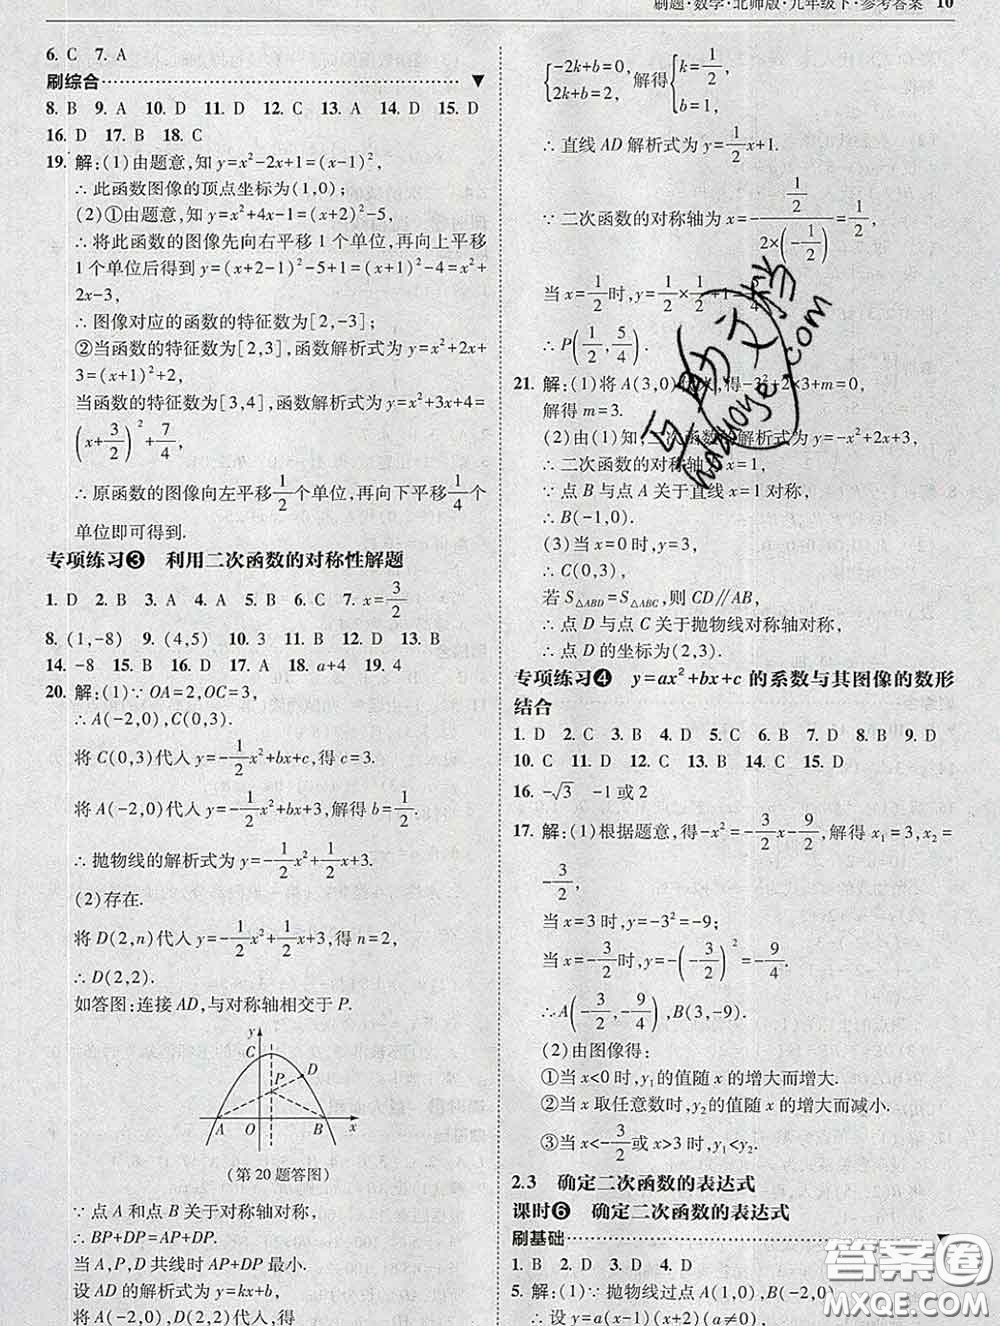 刷题·数学·北师版·九年级下·参考答案 10
6. C 7. A
刷综合
8. B 9. A 10. D 11. D 12. C 13. A 14. D 15. D
16. D 17. B 18. C
19. 解:(1)由题意,知 y=x²-2x+1=(x-1)²,
∴此函数图像的顶点坐标为(1,0);
(2)①由题意,知 y=x²+4x-1=(x+2)²-5,
∴将此函数的图像先向右平移 1 个单位,再向上平移
1 个单位后得到 y=(x+2-1)²-5+1=(x+1)²-4=x²+
2x-3,
∴图像对应的函数的特征数为[2,-3];
②当函数的特征数为[2,3],函数解析式为 y=x²+2x+
3=(x+1)²+2,
当函数的特征数为[3,4],函数解析式为 y=x²+3x+4=
(x+3/2)²+7/4,
∴原函数的图像向左平移1/2个单位,再向下平移1/4个
单位即可得到.
专项练习❸ 利用二次函数的对称性解题
1. D 2. B 3. A 4. A 5. B 6. C 7. x=3/2
8. (1,-8) 9. (4,5) 10. 3 11. B 12. D 13. B
14. -8 15. B 16. B 17. A 18. a+4 19. 4
20. 解:(1)∵OA=2,OC=3,
∴A(-2,0),C(0,3).
将 C(0,3)代人 y=-1/2x²+bx+c,得 c=3.
将 A(-2,0)代人 y=-1/2x²+bx+3,解得 b=1/2.
∴抛物线的解析式为 y=-1/2x²+1/2x+3.
(2)存在.
将 D(2,n)代人 y=-1/2x²+1/2x+3,得 n=2,
∴D(2,2).
如答图:连接 AD,与对称轴相交于 P.
y
C
D
P
A O B x
(第 20 题答图)
∵点 A 和点 B 关于对称轴对称,
∴BP+DP=AP+DP.
当 A,P,D 共线时 AP+DP 最小.
设 AD 的解析式为 y=kx+b,
将 A(-2,0),D(2,2)代人,得
{-2k+b=0, 2k+b=2, 解得{k=1/2, b=1,
∴直线 AD 解析式为 y=1/2x+1.
∵二次函数的对称轴为 x=-(1/2)/(2×(-1/2))=1/2,
当 x=1/2时,y=1/2×1/2+1=5/4,
∴P(1/2,5/4).
21. 解:(1)将 A(3,0)代人,得-3²+2×3+m=0,
解得 m=3.
(2)由(1)知,二次函数的解析式为 y=-x²+2x+3,
∴二次函数的对称轴为 x=1,
∵点 B 与点 A 关于直线 x=1 对称,
∴B(-1,0).
(3)当 x=0 时,y=3,
∴C(0,3).
若 S△ABD=S△ABC,则 CD∥AB,
∴点 D 与点 C 关于抛物线对称轴对称,
∴点 D 的坐标为(2,3).
专项练习❹ y=ax²+bx+c 的系数与其图像的数形
结合
1. D 2. C 3. B 4. D 5. D 6. B 7. D 8. B 9. D
10. C 11. D 12. C 13. D 14. C 15. D
16. -√3 -1 或 2
17. 解:(1)根据题意,得-x²=-3/2x-9/2,解得 x₁=3,x₂=
-3/2,
当 x=3 时,y=-3²=-9;
当 x=-3/2时,y=-(-3/2)²=-9/4.
∴A(-3/2,-9/4),B(3,-9).
(2)由图像得:
①当 x<0 时,y₁的值随 x 的增大而增大.
②当 x 取任意数时,y₂的值随 x 的增大而减小.
③当 x<-3/2或 x>3 时,y₁<y₂.
2.3 确定二次函数的表达式
课时❻ 确定二次函数的表达式
刷基础
1. B 2. D 3. D 4. D
5. 解:∵抛物线过点 A(1,0),B(-2,0)
∴设 y=a(x-1)(x+2)(a≠0),
互助文档
hdzuoye.com
答案圈
MXQE.COM